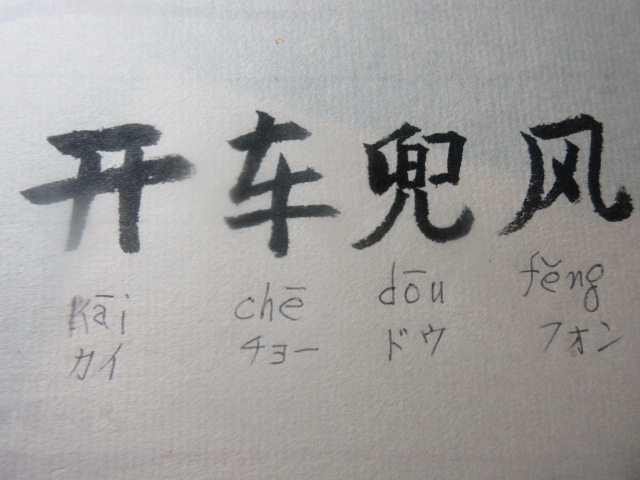 开车兜风
kāi chē dōu fěng
カイ チョー ドウ フォン